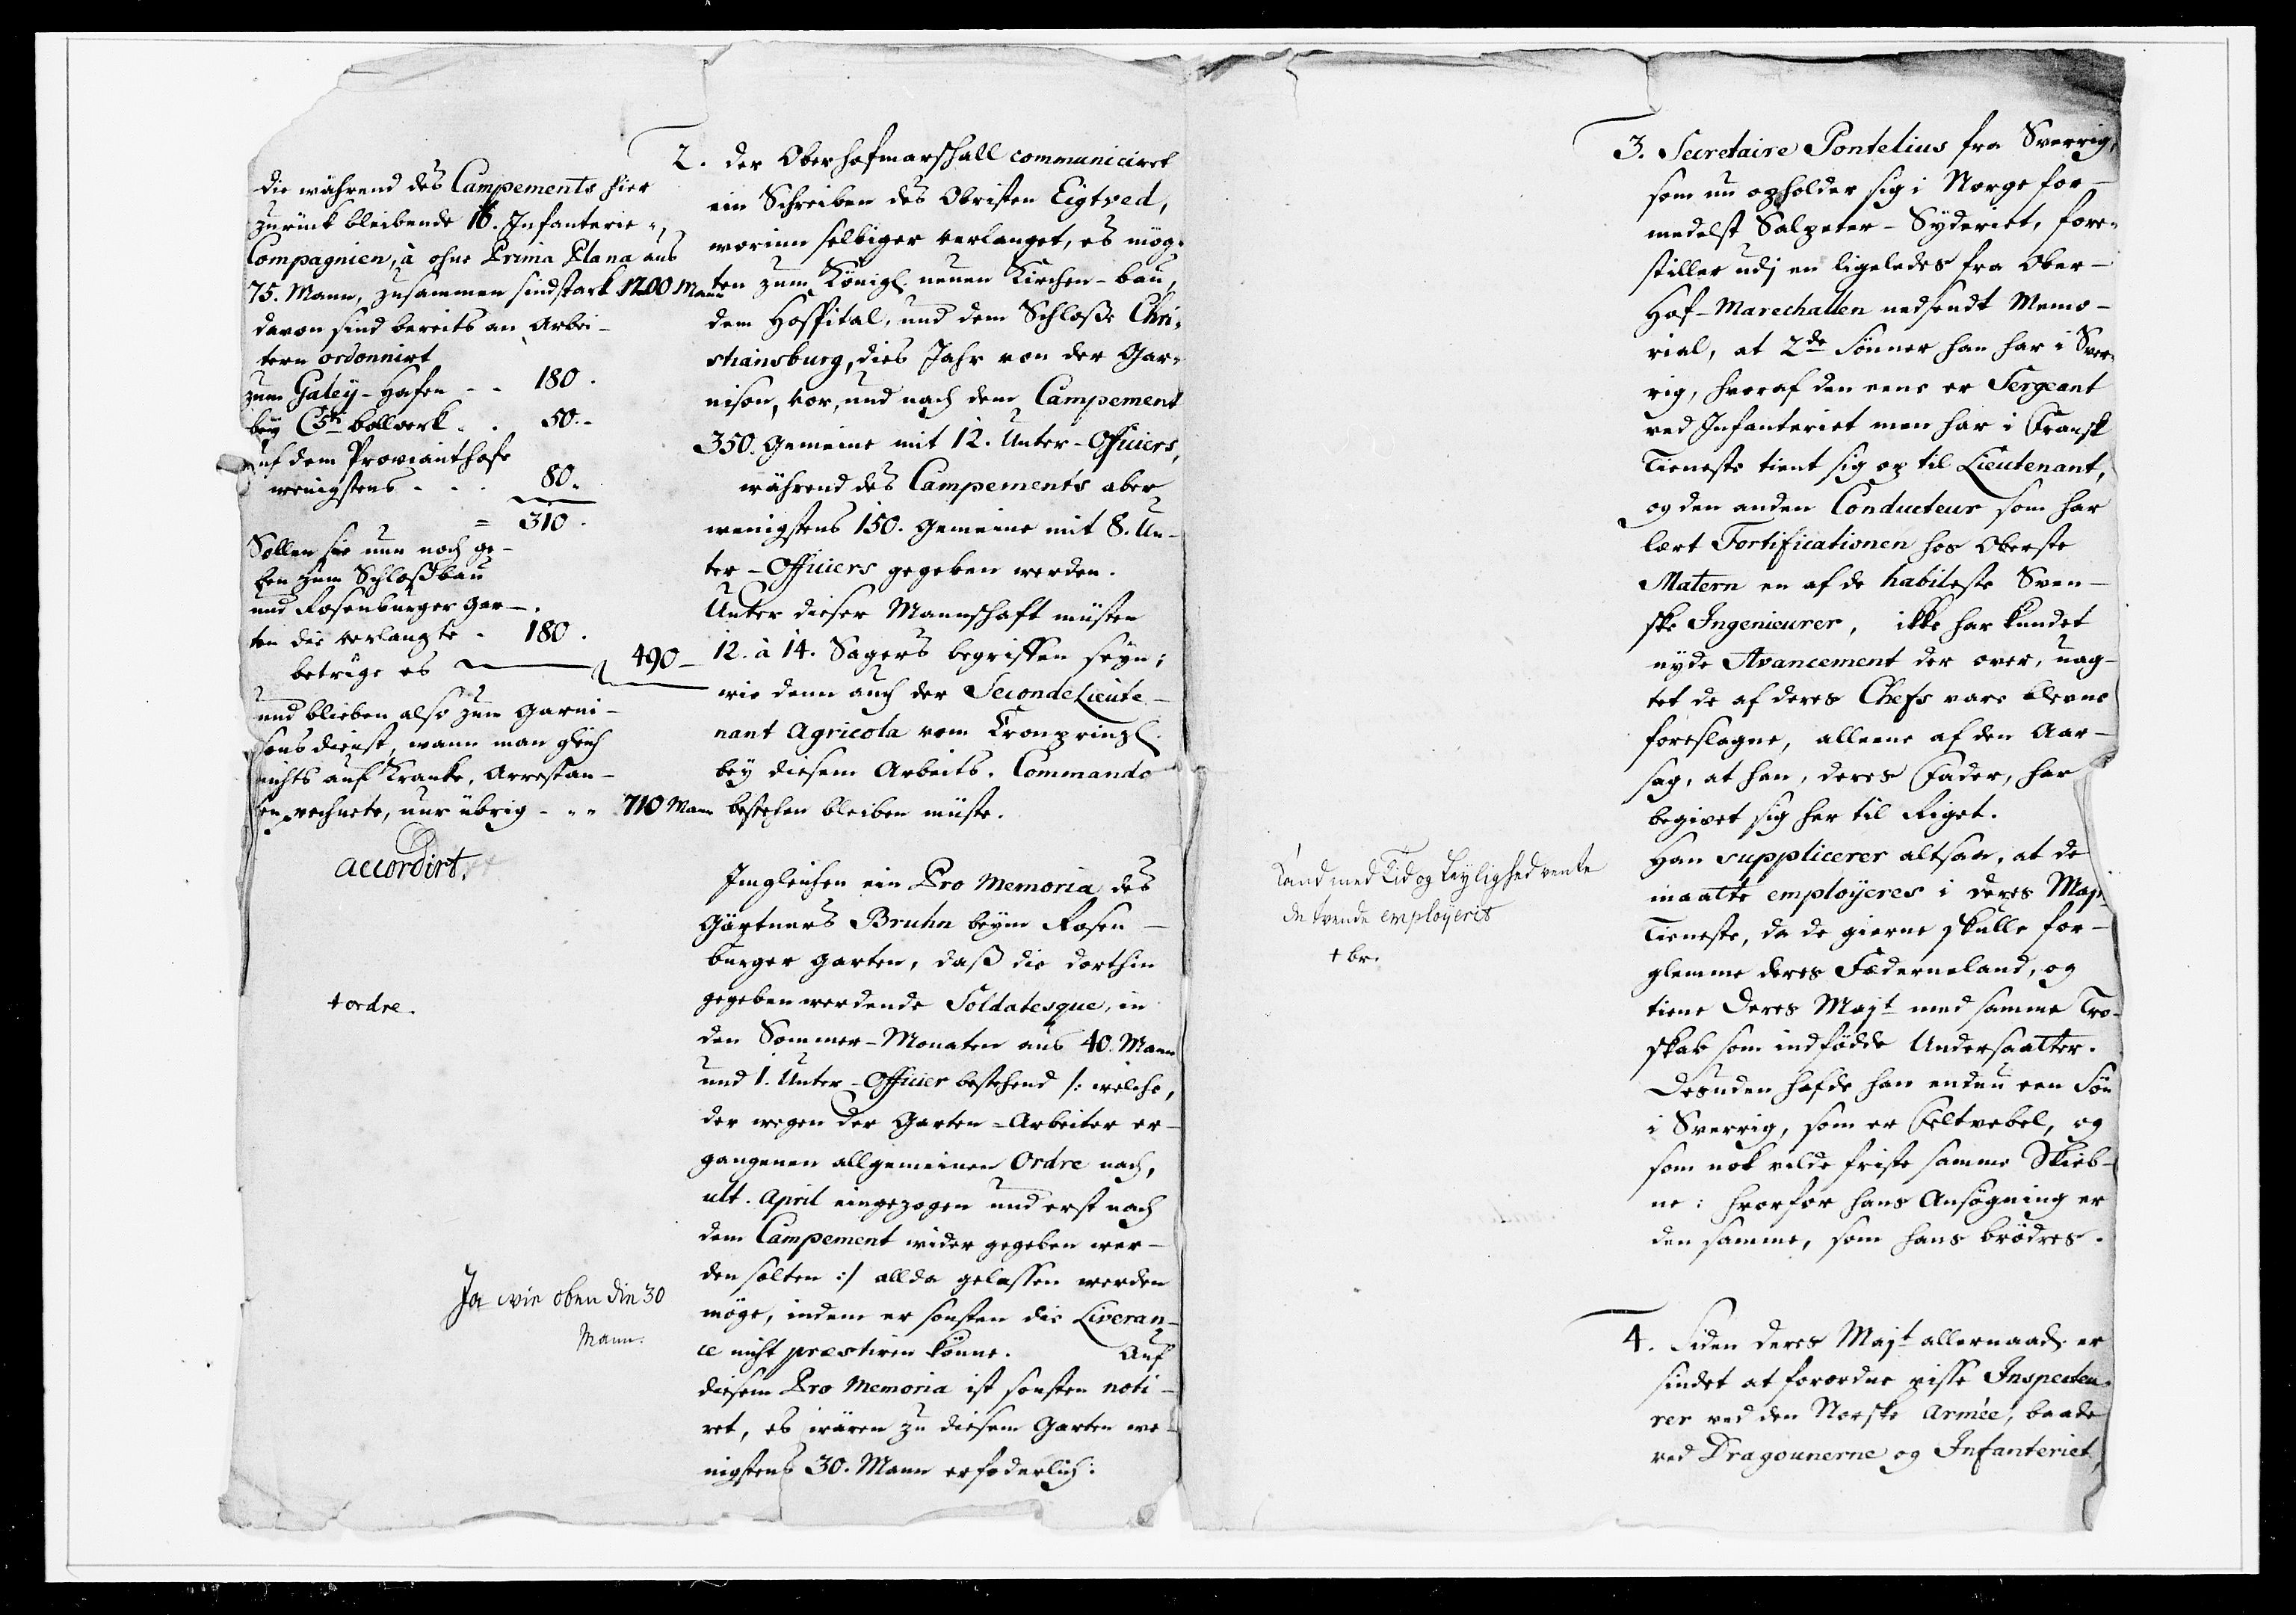 die während des Campements hier
zurück bleibende 16. Infanterie-
Compagnien, à ohne Prima Plana aus
75. Mann, zusammen sind stark 1200 Mann
davon sind bereits an Arbei-
tern ordonnirt
zum Galey-Hafen - - 180.
bey bollverk - . 50.-
auf dem Provianthofe
wenigstens - . . 80.
= 310.
Sollen sie nun noch ge-
ben zum Schloßbau
und Rosenburger Gar-
ten die verlangte - 180.
betrüge es 490-
und blieben also zum Garni-
sons dienst, wann man gleich
nichts auf Kranke, Arrestan-
ten rechnete, nur übrig - - - 710 Mann
accordirt.
+ ordre.
Ja wie oben die 30
Mann.
2. der Oberhofmarschall communiciret
ein Schreiben des Obristen Eigtved,
worinn selbiger verlanget, es mög-
ten zum Königl. neuen Kirchen-bau,
dem Hospital, und dem Schloße Chri-
stiansburg, dies Jahr von der Gar-
nison, vor, und nach dem Campement
350. Gemeine mit 12. Unter-Officiers,
während des Campements aber
wenigstens 150. Gemeine mit 8. Un-
ter-Officiers gegeben werden.
Unter dieser Mannschaft müsten
12. à 14. Sagers begriffen seyn;
wie denn auch der Seconde Lieute-
nant Agricola vom Cronprinzl.
bey diesem Arbeits-Commando
bestehen bleiben müste.
Imgleichen ein Pro Memoria des
Gärtners Bruhn beym Rosen-
burger Garten, daß die dorthin
gegeben werdende Soldatesque, in
den Sommer-Monaten aus 40. Mann
und 1. Unter-Officier bestehend /: welche,
der wegen der Garten-Arbeiter er-
gangenen allgemeinen Ordre nach,
ult. April eingezogen und erst nach
dem Campement wider gegeben wer-
den solten :/ allda gelassen werden
möge, indem er sonsten die Liveran-
ce nicht præstiren könne. Auf
diesem Pro Memoria ist sonsten noti-
ret, es wären zu diesem Garten we-
nigstens 30. Mann erforderlich:
Kand med Tid og Leylighed vente
de tvende employerit
+ br.
3. Secretaire Pontelius fra Sverrig,
som nu opholder sig i Norge for-
medelst Salpeter-Syderiet, fore-
stiller udj en ligeledes fra Ober-
Hof-Marechallen nedsendt Memo-
rial, at 2de Sønner han har i Sver-
rig, hvoraf den eene er Sergeant
ved Infanteriet men har i Fransk
Tieneste tient sig op til Lieutenant,
og den anden Conducteur som har
lært Fortificationen hos Oberste
Matern en af de habileste Sven-
ske Ingenieurer, ikke har kundet
nyde Avancement der over, uag-
tet de af deres Chefs vare blevne
foreslagne, alleene af den Aar-
sag, at han, deres Fader, har
begivet sig her til Riget.
Han supplicerer altsaa, at de
maatte employeres i Deres Maj
Tieneste, da de gierne skulle for-
glemme deres Fæderneland, og
tiene Deres Majt med samme Tro-
skab som indfødde Undersaatter.
Desuden hafde han endnu een Søn
i Sverrig, som er Feltvebel, og
som nok vilde friste samme Skieb-
ne: hvorfor hans Ansøgning er
den samme, som hans brødres.
4. Siden Deres Majt allernaad. er
sindet at forordne visse Inspecteu-
rer ved den Norske Armée, baade
ved Dragounerne og Infanteriet,